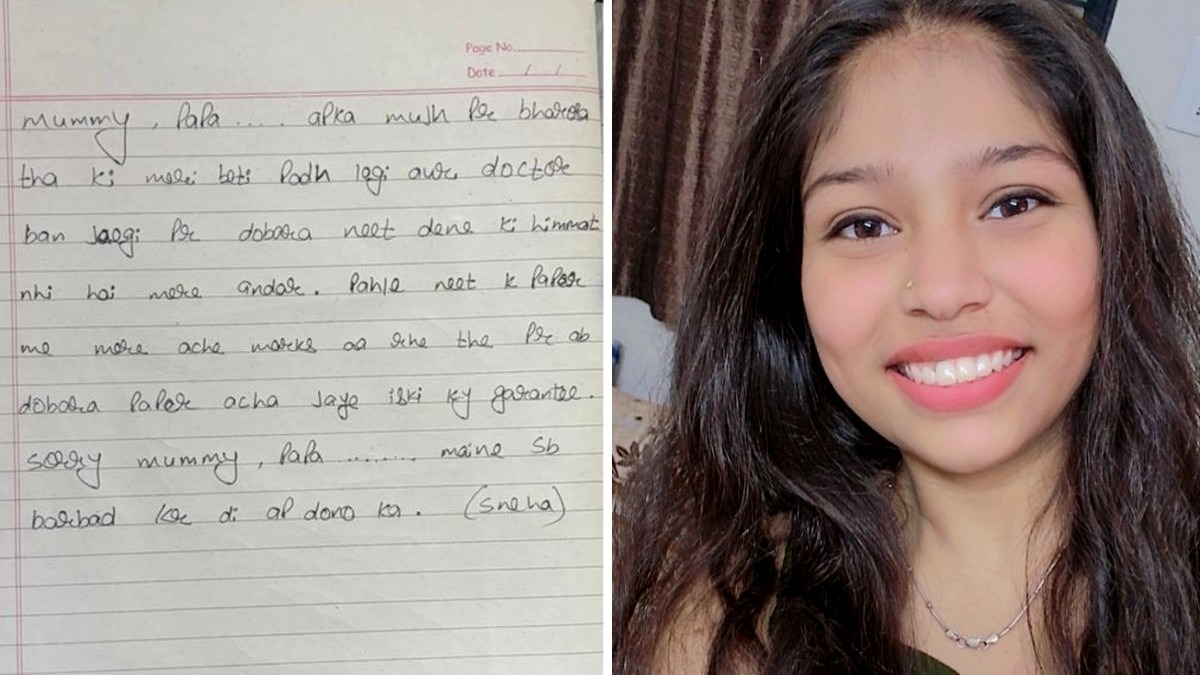 Page No.
Date / /
mummy, PaPa .... apka mujh Pr bharosa
tha ki meri beti Padh legi aur doctor
ban jaegi Pr dobara neet dene ki himmat
nhi hai mere andar. Pahle neet k PaPer
me mere ache marks aa rhe the Pr ab
dobara PaPer acha jaye iski ky garantee.
sorry mummy, PaPa ........ maine sb
barbad kr di aP dono ka. (Sneha)